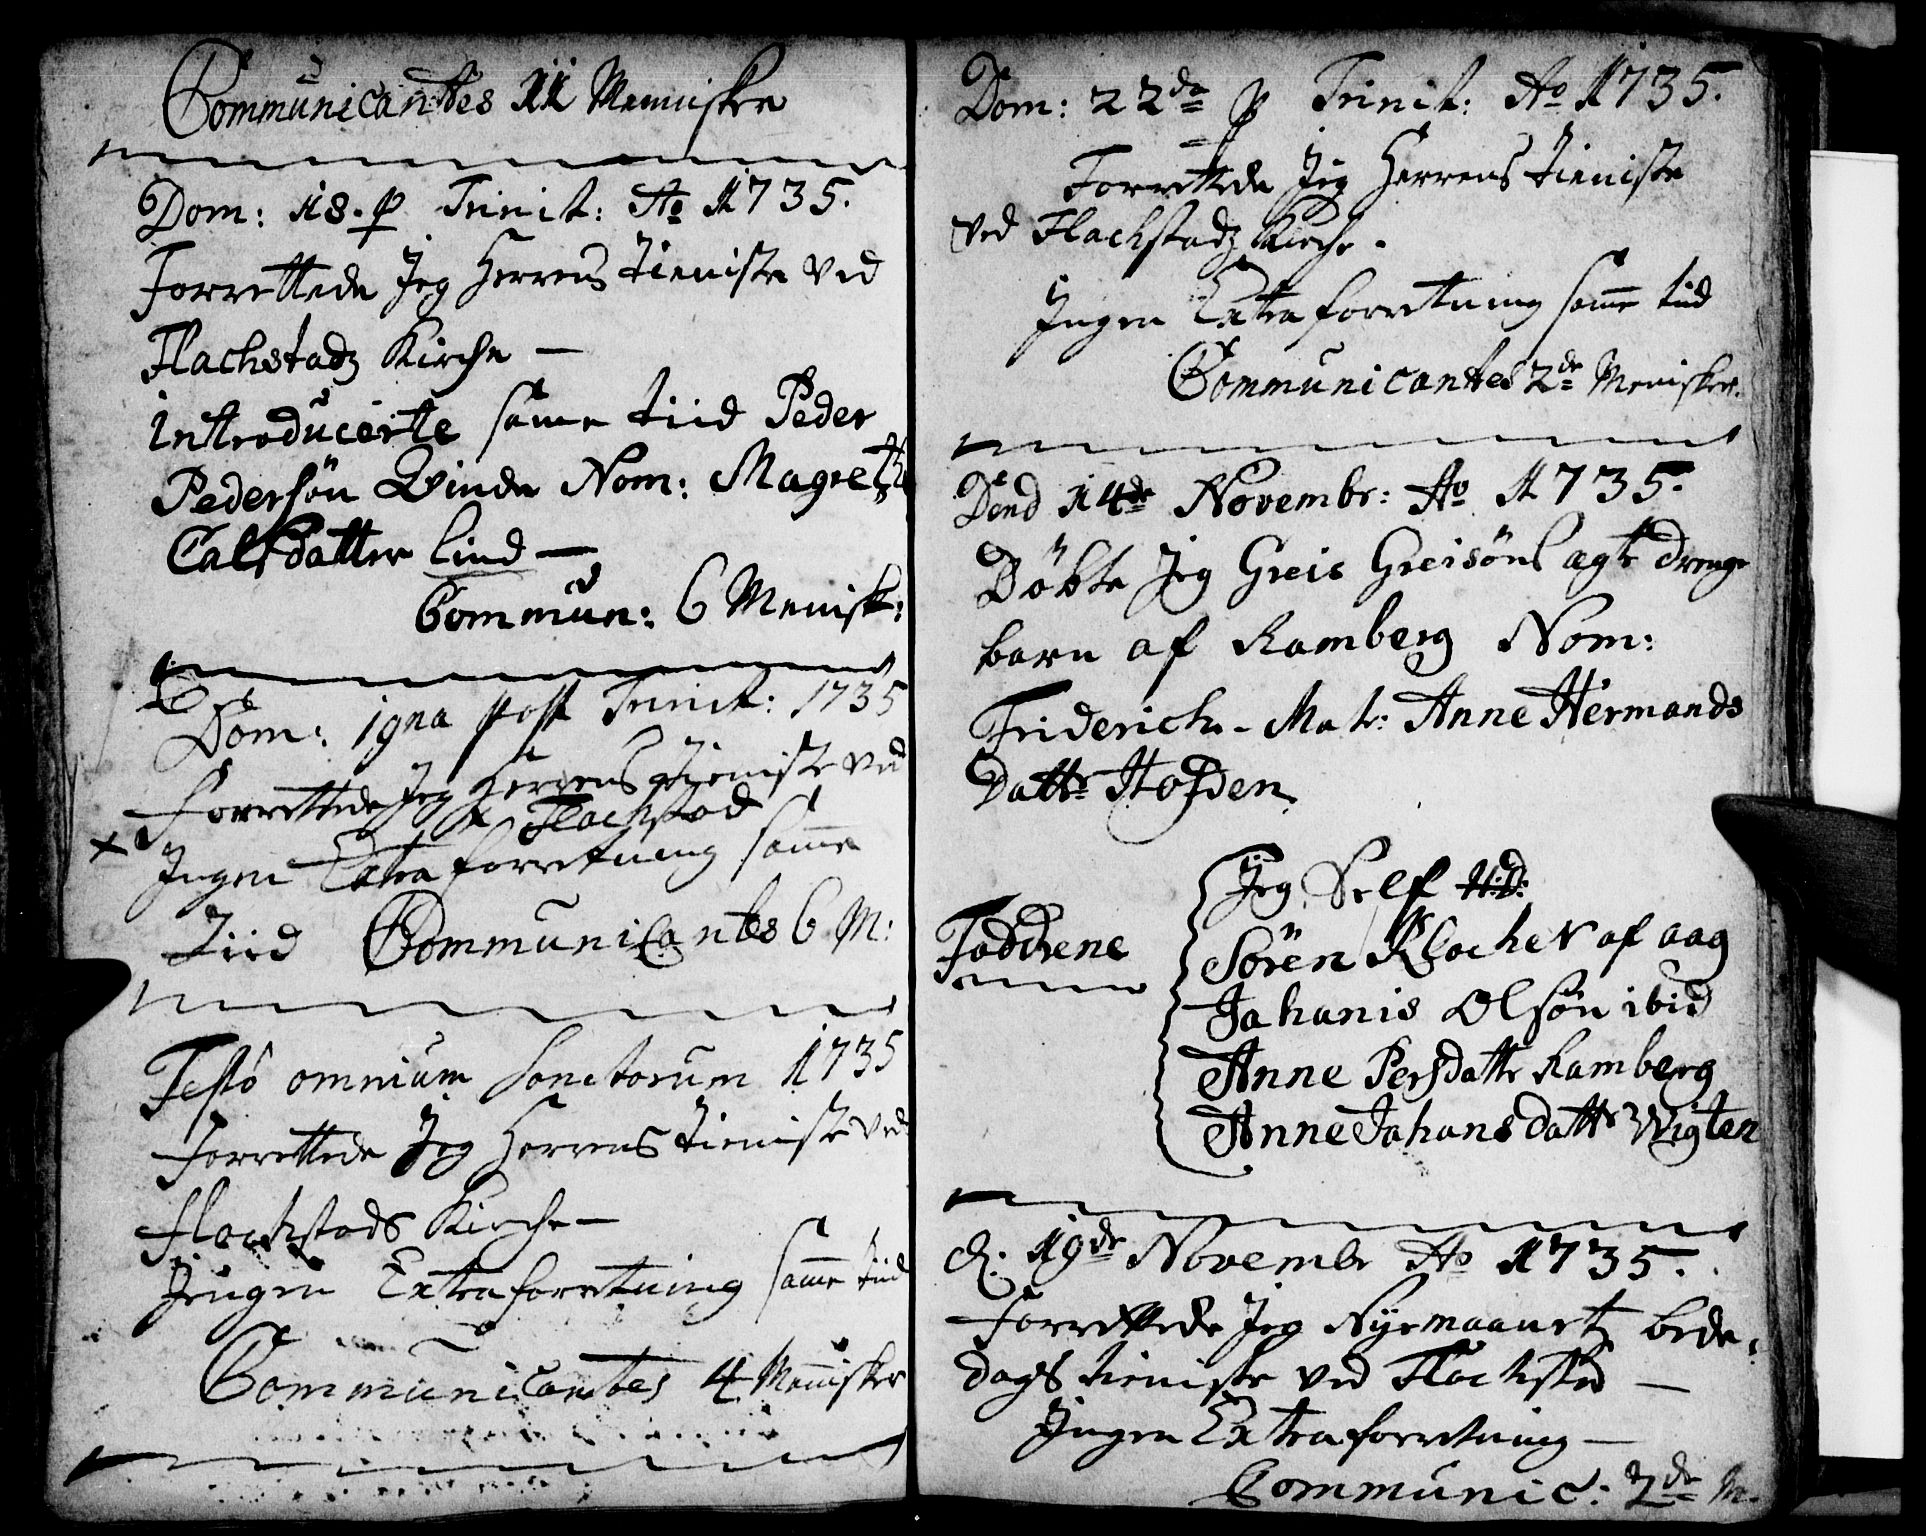 Communicantes 11 Menniskr
Dom: 18. p Trinit: Ao 1735.
Forrettede Jeg Herrens tieniste ved
Flachstadz Kirche —
introducerte same tiid Peder
Pedersøn Qvinde Nom: Magreth
Calsdatter Lind —
Commun: 6 Menisk:
Dom: 19na post Trinit: 1735
Forrettede Jeg Herrens tieniste ved
x Flachstad
Ingen Extra forretning samme
tiid Communicantes 6 M:
Festo omnium Sanctorum 1735
Forrettede Jeg Herrens tieniste ved
Flachstads Kirche —
Ingen Extra forretning samme tiid
Communicantes 4 Mennisker
Dom: 22da p Trinit: Ao 1735.
Forrettede Jeg Herrens tieniste
ved Flachstadz Kirche.
Ingen Extra forretning same tiid
Communicantes 2de Menisker.
Dend 14de Novembr: Ao 1735.
Døbte Jeg Greis Greisøns ægte drenge
barn af Ramberg Nom:
Friderich - Matr: Anne Hermands
Dattr
Jeg Self
Faddrene
Søren Klocker af aag
Johanis Olsøn ibid
Anne Persdattr Ramberg
Anne Johansdattr Wigten
d. 19de Novembr Ao 1735.
Forrettede Jeg Nyemaanetz bede-
dags tieniste ved Flachstad —
Ingen Extra forretning —
Communic: 2de M.